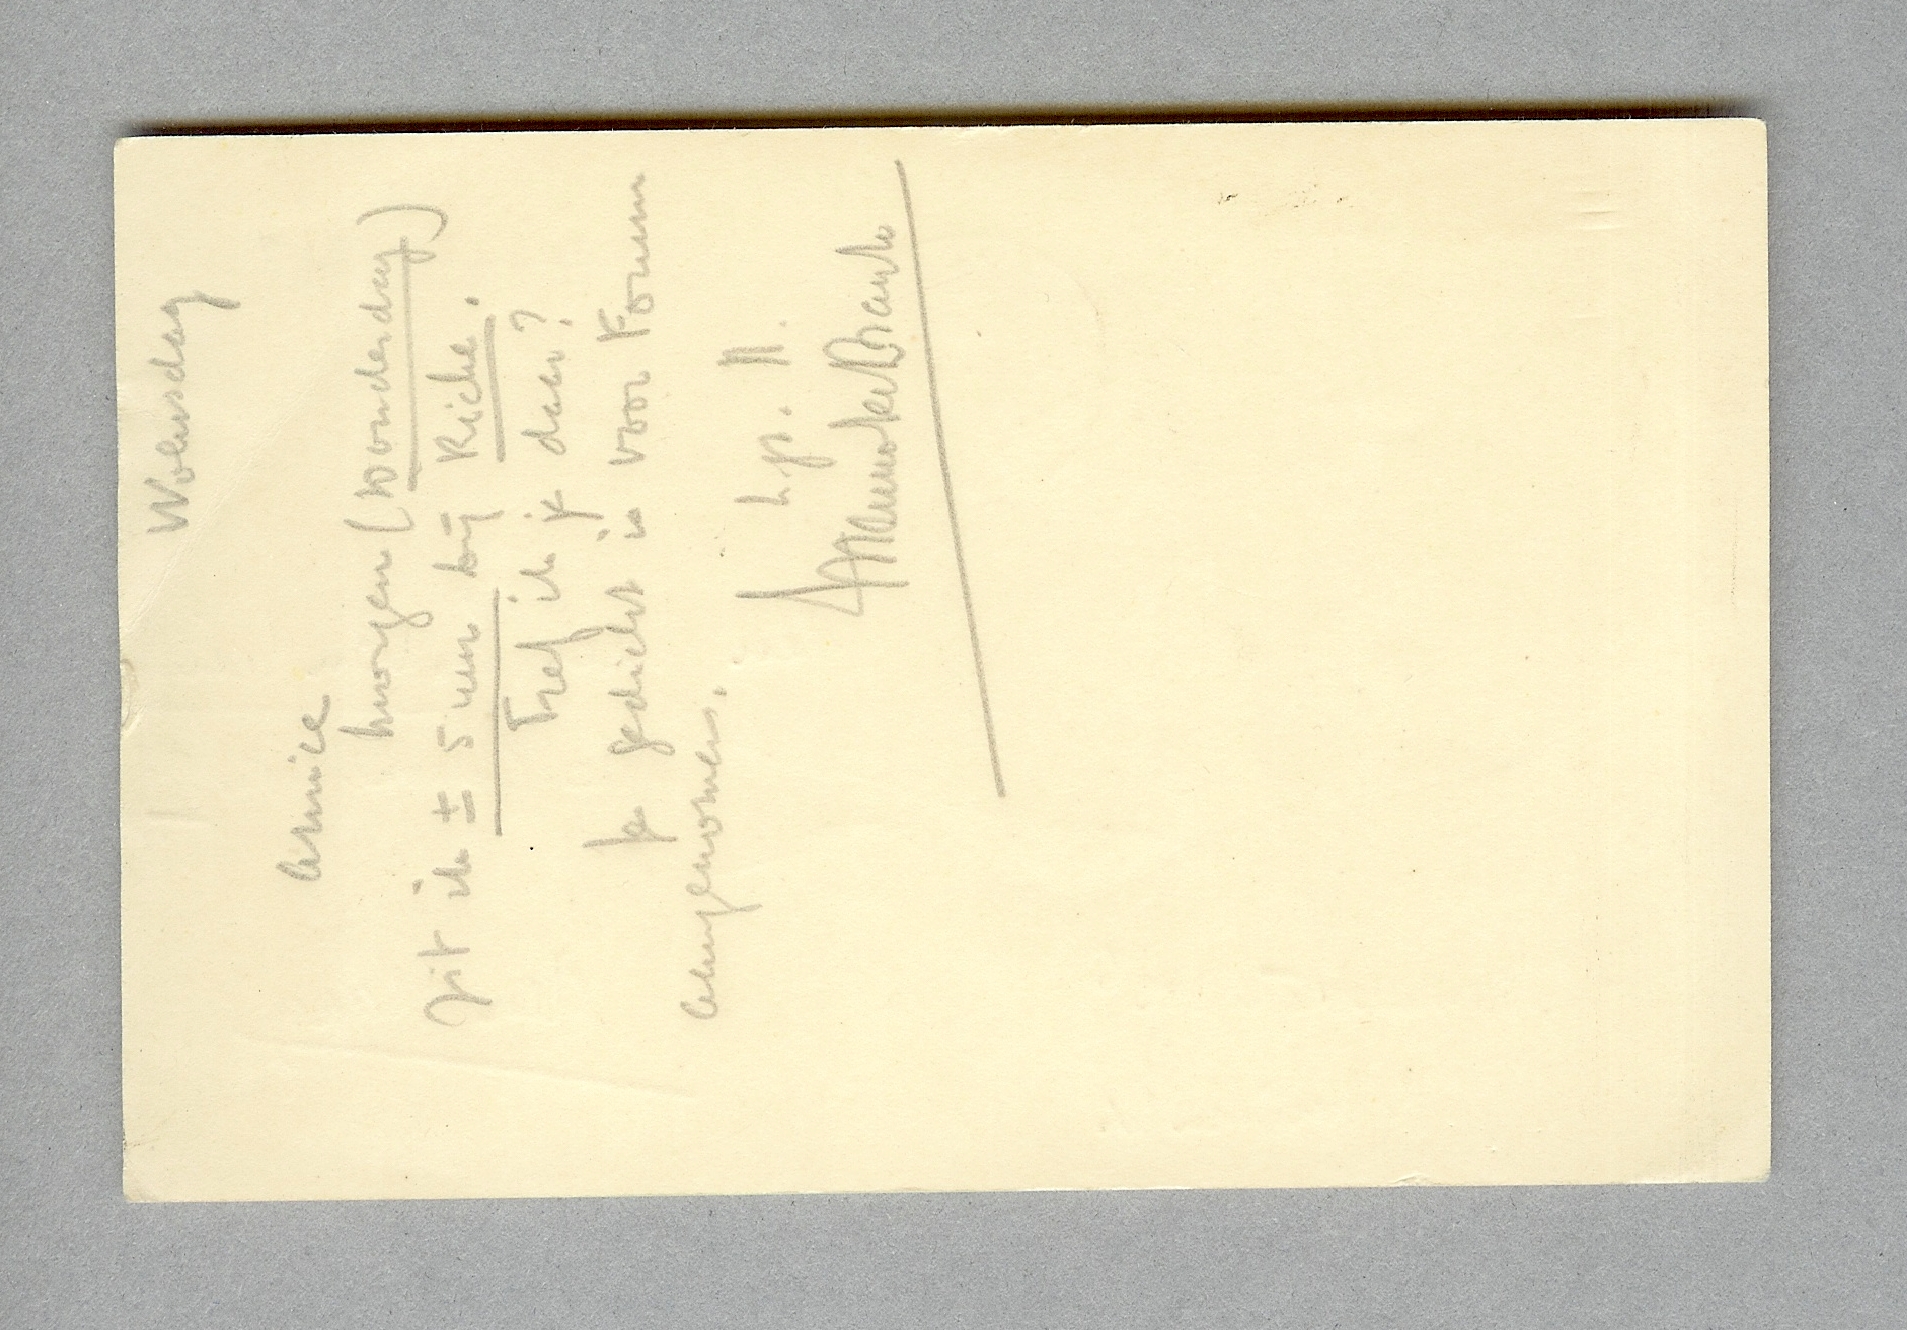 Woensdag
Amice
morgen (donderdag)
zit ik ± 5 uur bij Riche.
Tref ik je daar?
Je gedicht is voor Forum
aangenomen.
t.à.t.
Menno ter Braak